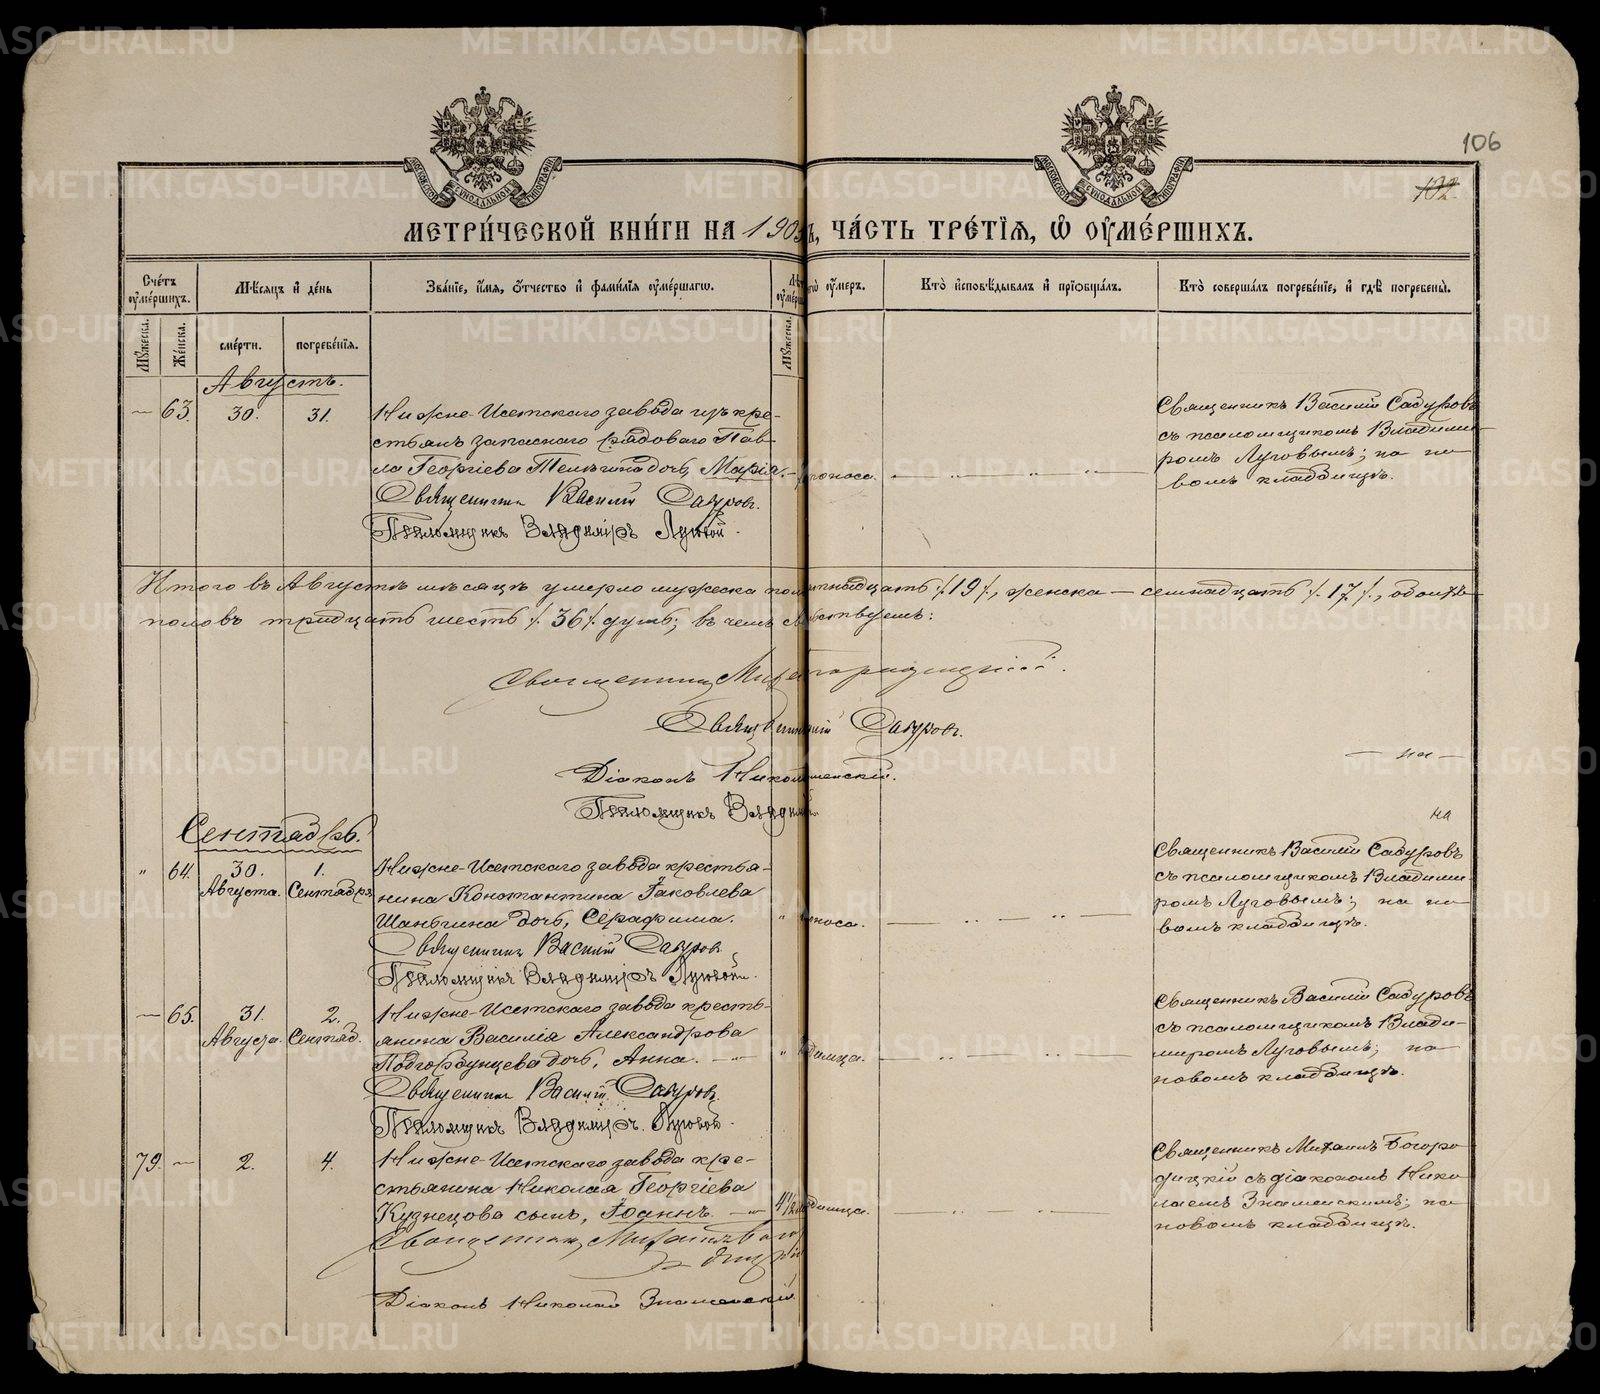 106
102.
МЕТРИЧЕСКОЙ КНИГИ НА 190 Ъ, ЧАСТЬ ТРЕТІЯ, Ѡ ОУМЕРШИХЪ.
Счетъ оумершихъ.
Мѣсяцъ и день
Званіе, имя, отчество и фамилія оумершагѡ.
оумеръ.
Кто исповѣдывалъ и пріобщалъ.
Кто совершалъ погребеніе, и гдѣ погребены.
Мужеска.
Женска.
смерти.
погребенія.
Мужеска.
Августъ.
— 63. 30. 31.
Нижне-Исетскаго завода изъ кре-
стьянъ запаснаго рядоваго Пав-
ла Георгіева Телѣгина дочь, Марія.
поноса.
Священникъ Василій Сабуровъ.
Псаломщикъ Владиміръ Луговой.
Священникъ Василій Сабуровъ
съ псаломщикомъ Владими-
ромъ Луговымъ; на но-
вомъ кладбищѣ.
Итого въ Августѣ мѣсяцѣ умерло мужеска пола надцать /19/, женска — семнадцать /17/, обоихъ
половъ тридцать шесть /36/ душъ; въ чемъ свидѣтельствуемъ:
Священникъ Богородицкій.
Священникъ Василій Сабуровъ.
Діаконъ Николай Знаменскій.
Псаломщикъ Владимір
— на —
на
Сентябрь.
" 64. 30. Августа. 1. Сентября
Нижне-Исетскаго завода крестья-
нина Константина Іаковлева
Шаньгина дочь, Серафима.
" поноса.
Священникъ Василій Сабуровъ
Псаломщикъ Владиміръ Луговой.
Священникъ Василій Сабуровъ
съ псаломщикомъ Владими-
ромъ Луговымъ; на но-
вомъ кладбищѣ.
— 65. 31. Августа. 2. Сентяб.
Нижне-Исетскаго завода кресть-
янина Василія Александрова
Подгорбунцева дочь, Анна.
Священникъ Василій Сабуровъ.
Псаломщикъ Владиміръ Луговой.
Священникъ Василій Сабуровъ
съ псаломщикомъ Влади-
миромъ Луговымъ; на
новомъ кладбищѣ.
79. — 2. 4.
Нижне-Исетскаго завода кре-
стьянина Николая Георгіева
Кузнецова сынъ, Іоаннъ.
Священникъ Михаилъ Бого
Діаконъ Николай Знаменскій
Священникъ Михаилъ Богоро-
дицкій съ діакономъ Нико-
лаемъ Знаменскимъ; на
новомъ кладбищѣ.
METRIKI.GASO-URAL.RU